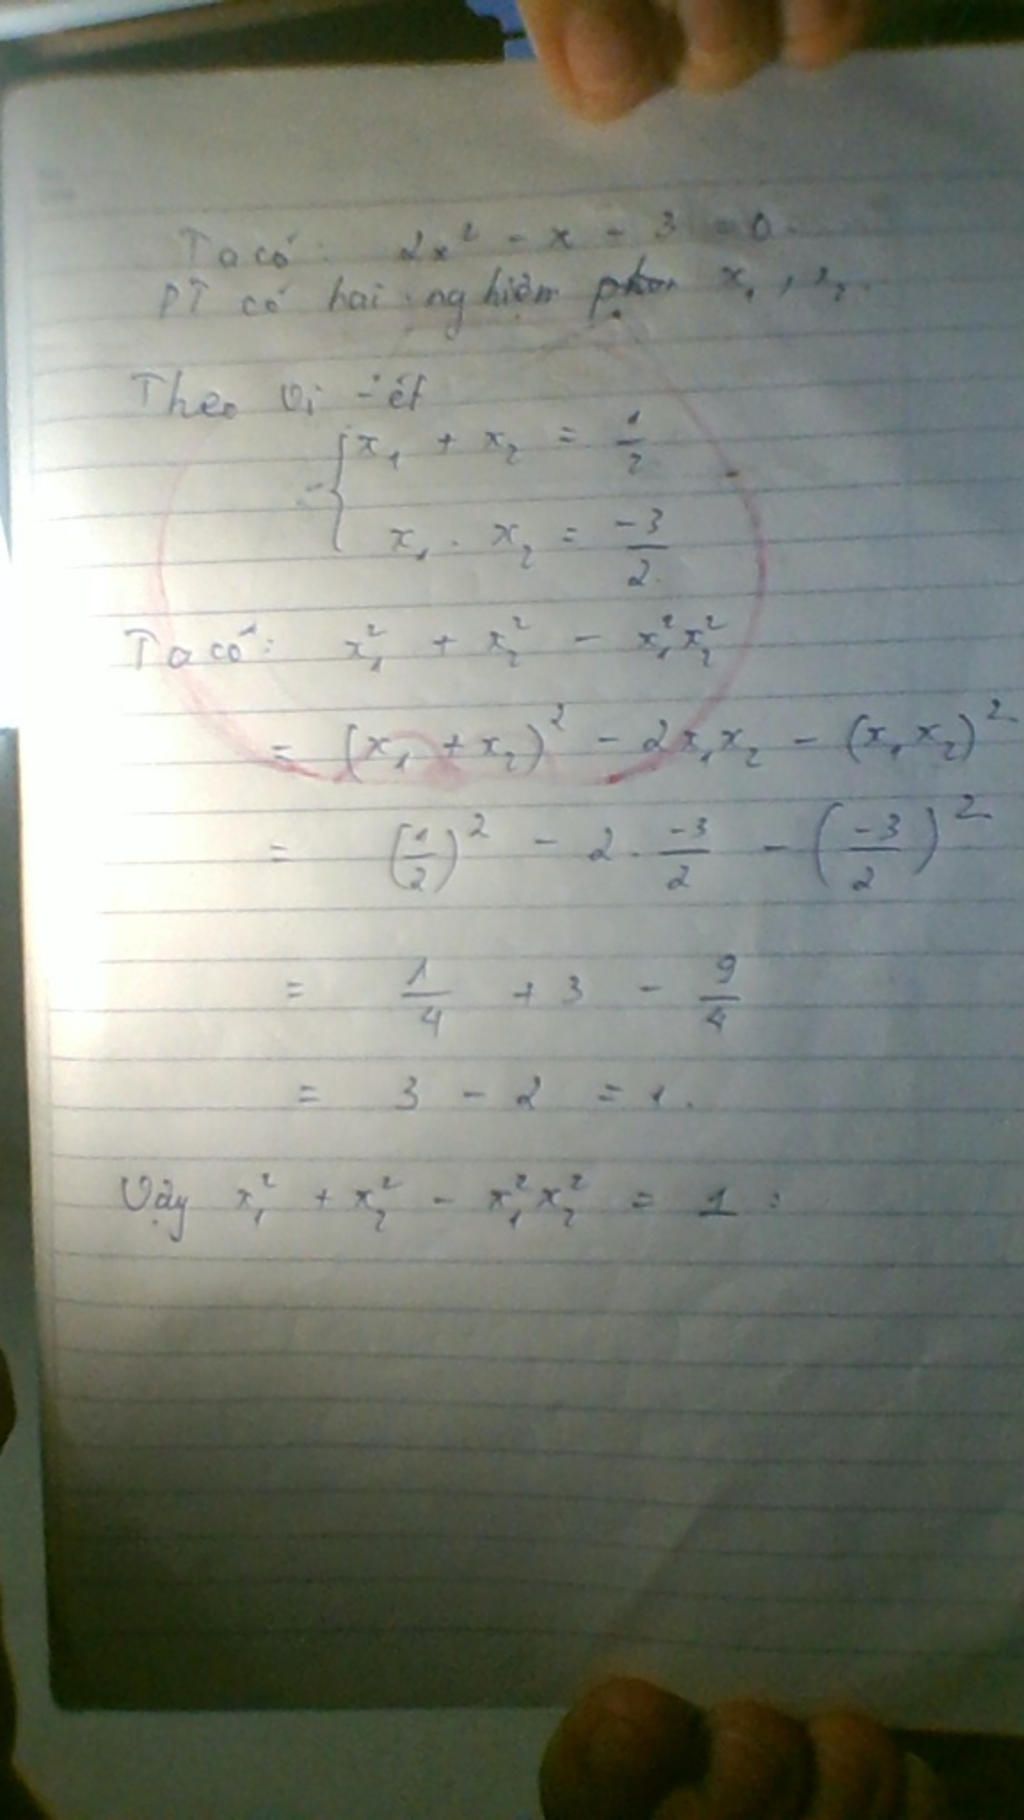 Ta có: 2x² - x - 3 = 0.
PT có hai nghiệm phân x₁, x₂.
Theo Vi-ét
{ x₁ + x₂ = 1/2
x₁ . x₂ = -3/2
Ta có: x₁² + x₂² - x₁²x₂²
= (x₁ + x₂)² - 2x₁x₂ - (x₁x₂)²
= (1/2)² - 2 . -3/2 - (-3/2)²
= 1/4 + 3 - 9/4
= 3 - 2 = 1.
Vậy x₁² + x₂² - x₁²x₂² = 1 :